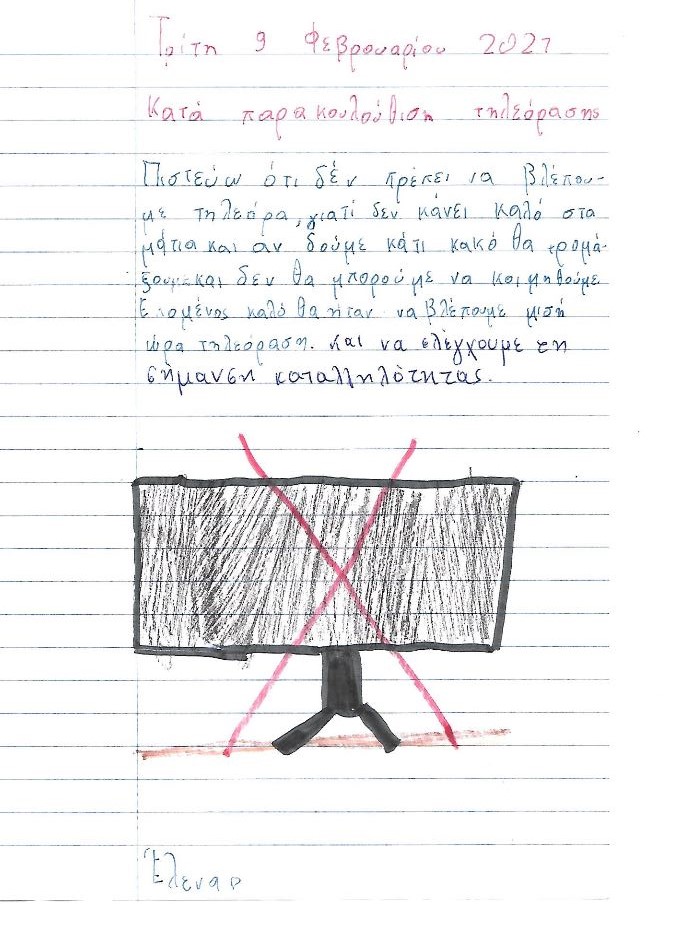 Τρίτη 9 Φεβρουαρίου 2021
Κατά παρακουλούθιση τηλεόρασης
Πιστεύω ότι δέν πρέπει να βλέπου-
με τηλεόρα, γιατί δεν κάνει καλό στα
μάτια και αν δούμε κάτι κακό θα τρομά-
ξουμε και δεν θα μπορούμε να κοιμηθούμε.
Επομένος καλό θα ήταν να βλέπουμε μισή
ώρα τηλεόραση. και να ελέγχουμε τη
σήμανση καταλληλότητας.
Έλενα Ρ